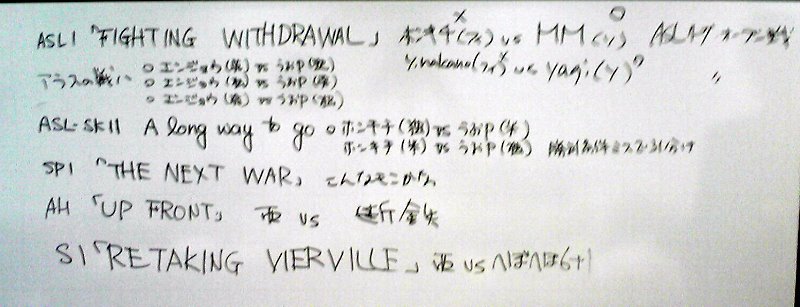 ASL1「FIGHTING WITHDRAWAL」 ホンキチ(フィ) vs MM(ソ) ASL オープン戦
Y.nakano(フィ) vs yagi(ソ) 〃
アラスの戦い ○エンジョウ(英) vs うおP(独)
○エンジョウ(独) vs うおP(英)
○エンジョウ(英) vs うおP(独)
ASL-SK11 A long way to go ○ホンキチ(独) vs うおP(米)
ホンキチ(米) vs うおP(独) 勝利条件ミスで引分け
SPI「THE NEXT WAR」
AH「UP FRONT」 vs
S1「RETAKING VIERVILLE」 vs へぽへぽ6+1